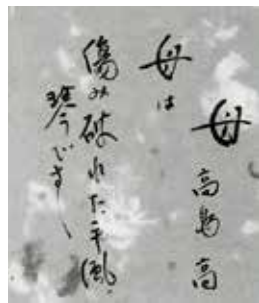 母
高島高
母は
傷み破れた手風
琴です